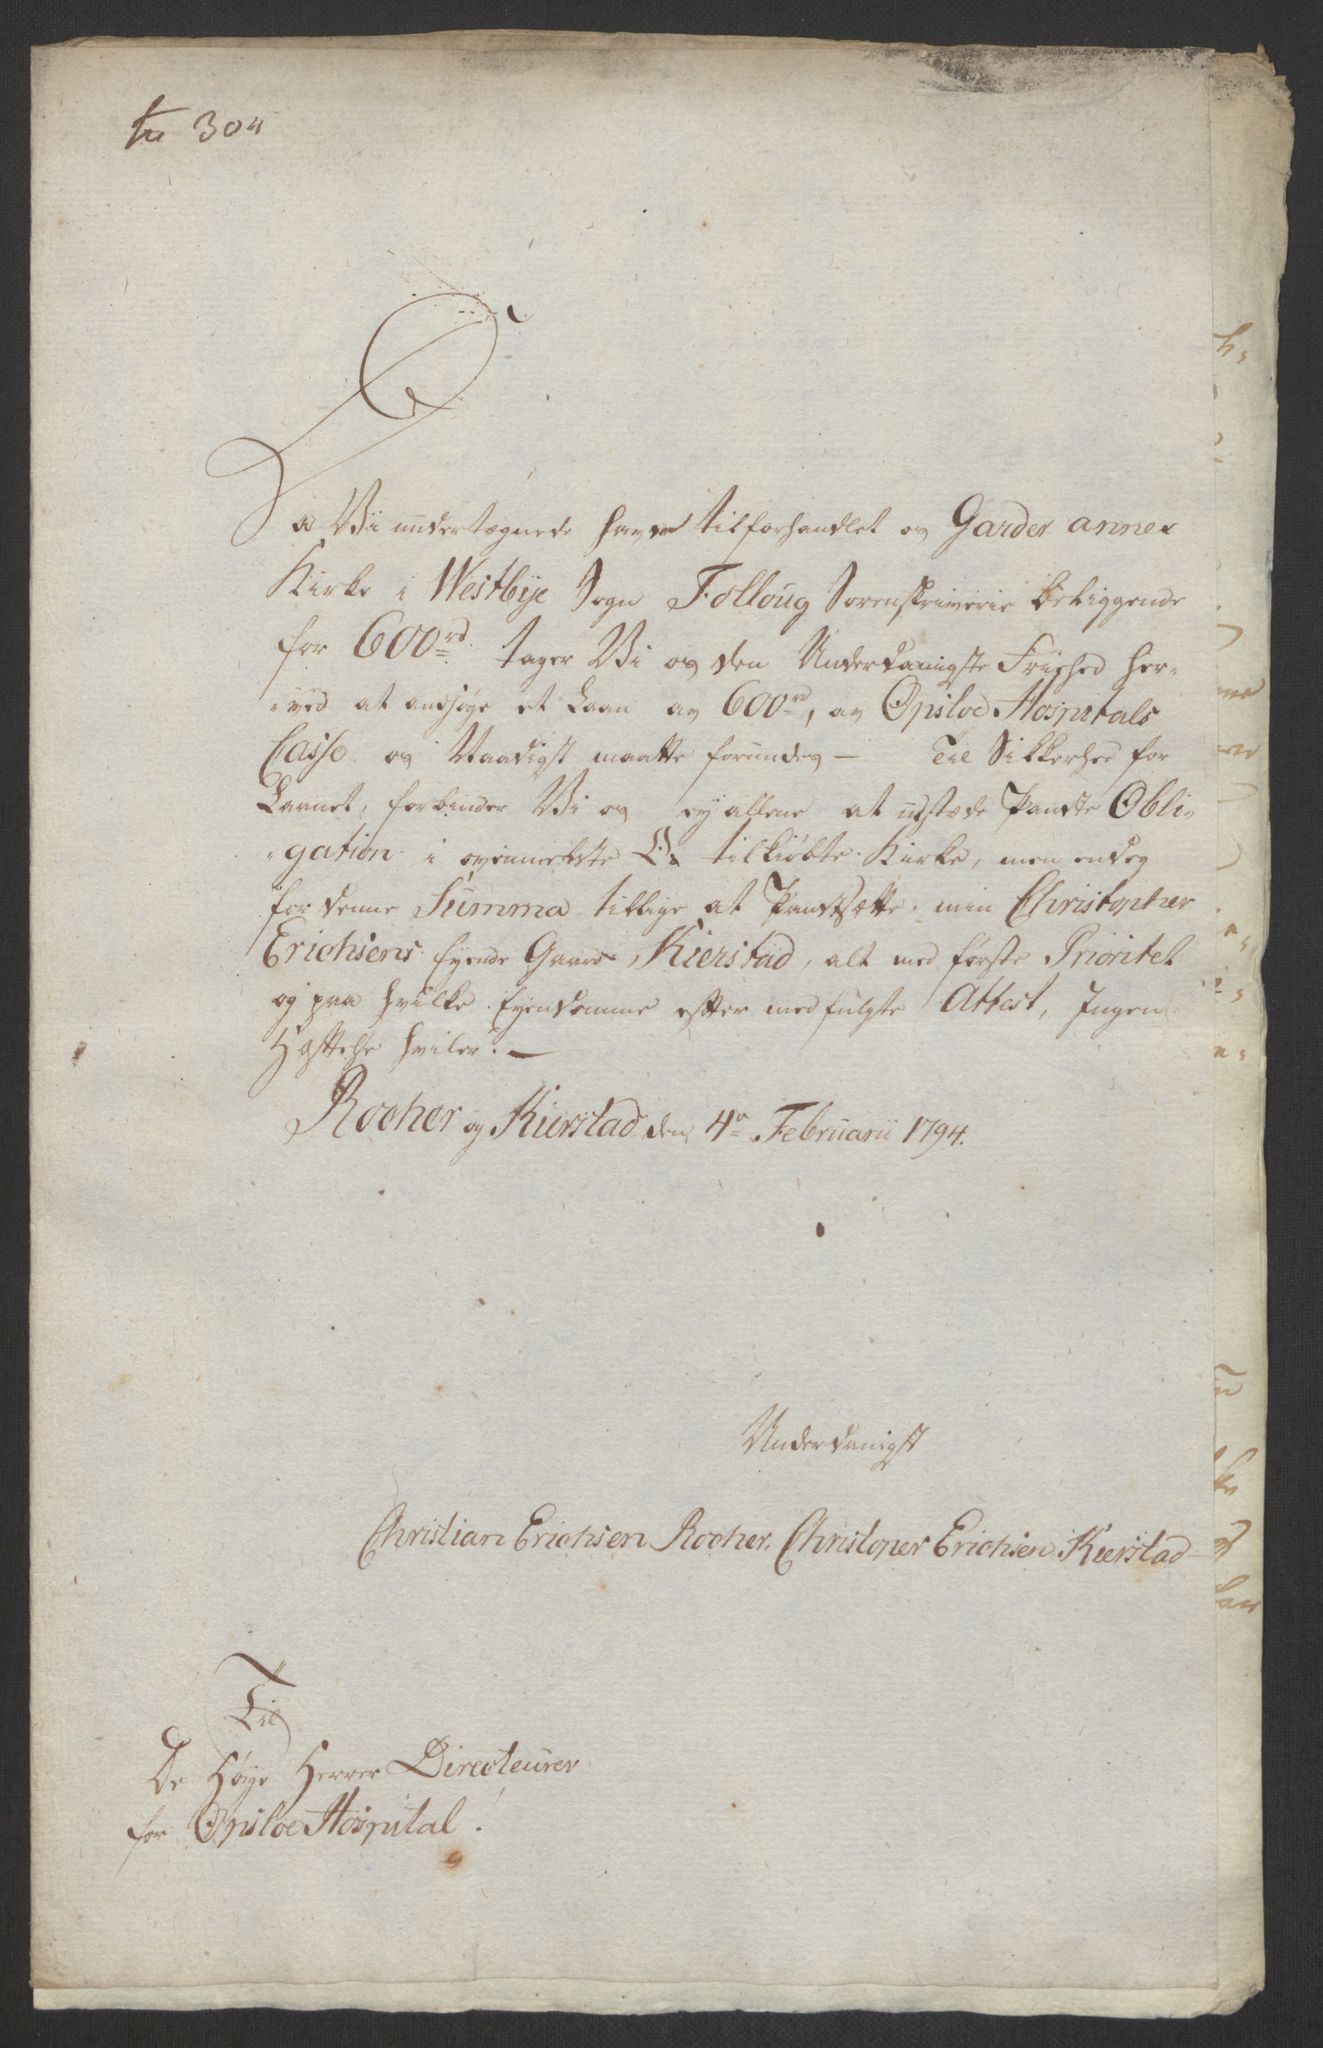 304
Da Vi undertegnede have tilforhandlet os Garder annex
Kirke i Westbye Sogn Folloug Sorenskriverie beliggende
for 600rd. tager Vi os den Underdanigste Friehed her-
-ved at ansøge et Laan av 600rd, av Opsloe Hospitals
Casse os Naadigst maatte forundes — Til Sikkerhed for
Laanet, forbinder Vi os ey allene at udstæde Pandte Obli-
-gation i ovenmeldte tilkiøbte Kirke, men endog
for denne Summa tillige at Pandtsætte min Christopher
Erichsens Eyende Gaard Kierstad, alt med første Prioritet
og paa hvilke Eyendomme efter medfulgte Attest, Ingen
Hæftelse hviler. —
Rocher og Kierstad den 4de Februarii 1794.
Underdanigst
Christian Erichsen Rocher. Christoper Erichsen Kierstad
Til
De Høye Herrer Directeurer
for Opsloe Hospital!